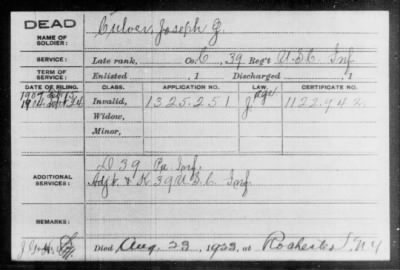 DEAD
NAME OF SOLDIER: Culver, Joseph G.
SERVICE: Late rank, Co. C, 39 Reg't U.S.C. Inf
TERM OF SERVICE: Enlisted , 1 Discharged , 1
DATE OF FILING. CLASS. APPLICATION NO. LAW. CERTIFICATE NO.
Invalid, 1325.251 1122.942
Widow,
Minor,
ADDITIONAL SERVICES:
D 39 Pa Inf.
Adjt. & K 39 U.S.C. Inf
REMARKS:
Died Aug. 23, 1923, at Rochester N.Y